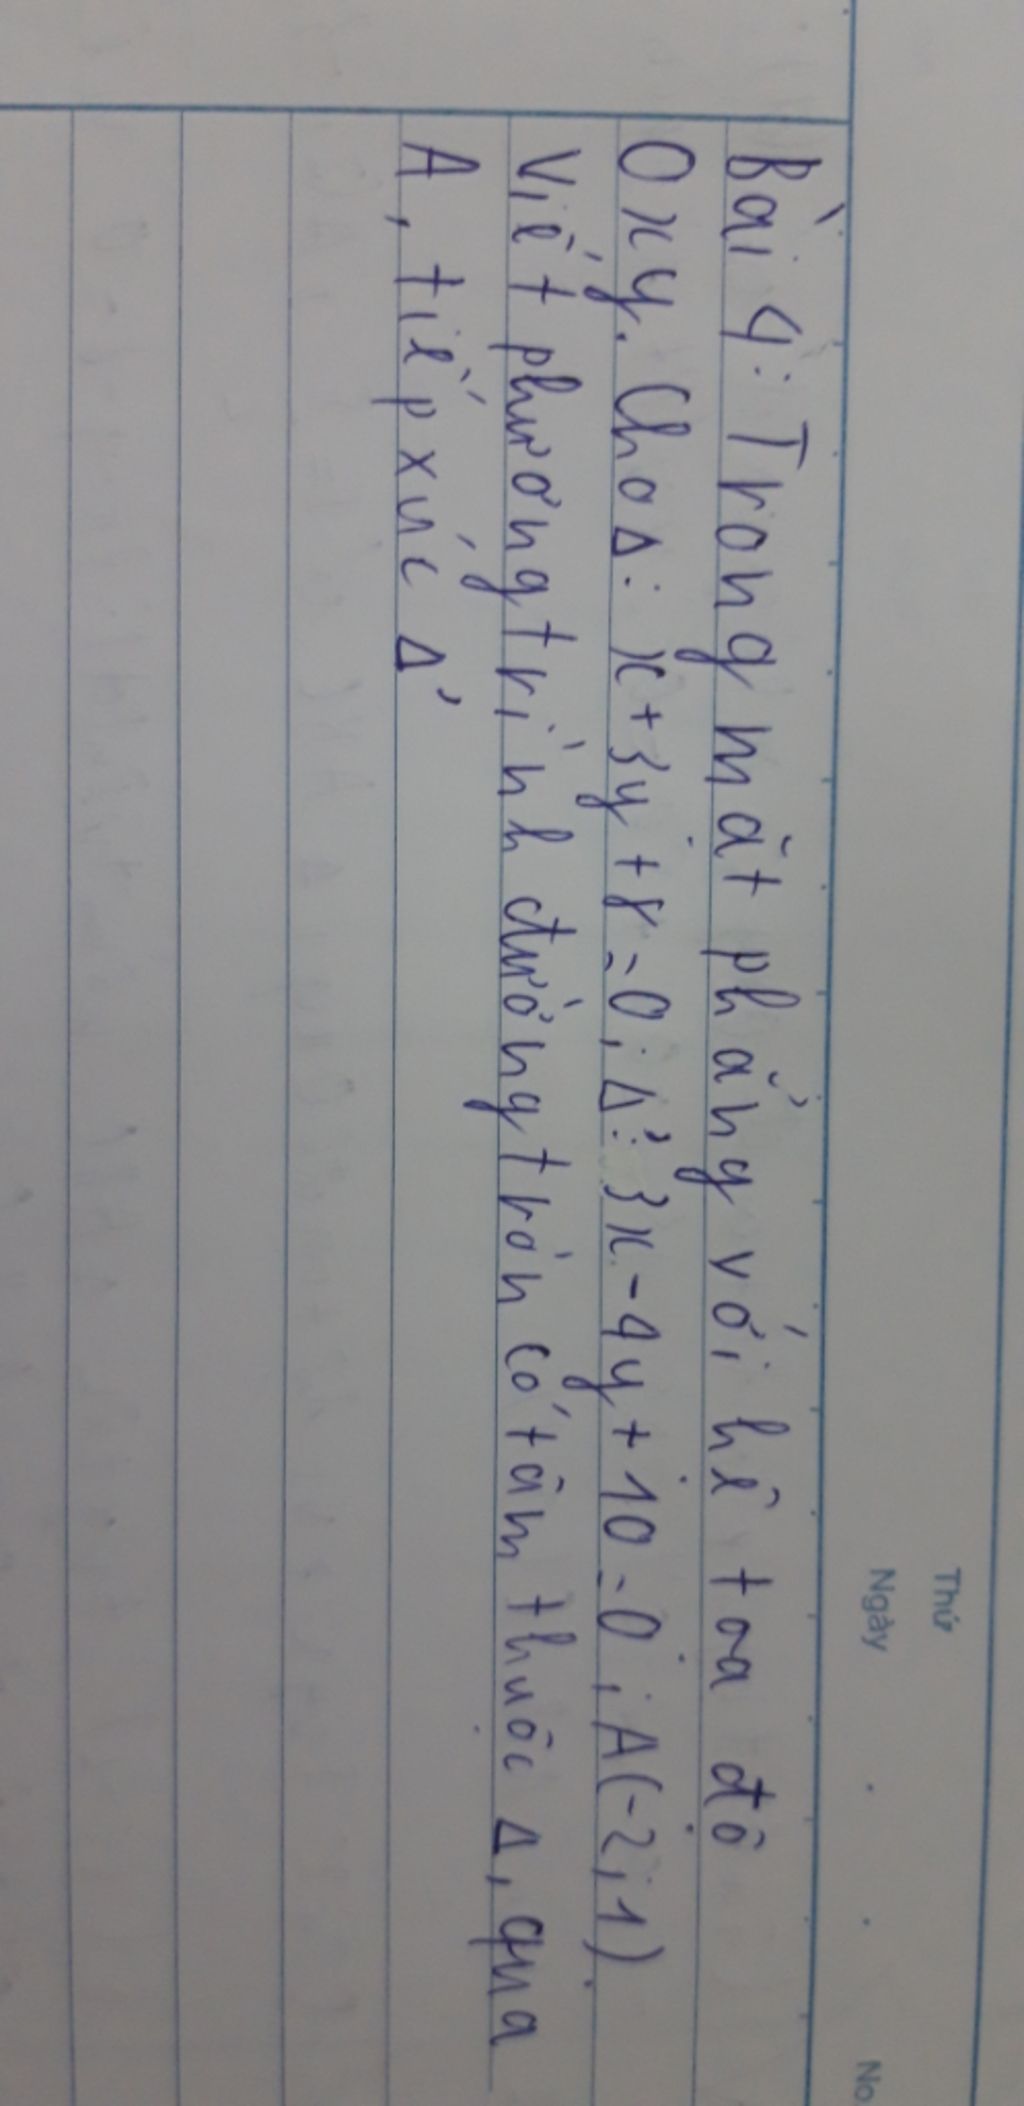 Thứ
Ngày
No
Bài 4: Trong mặt phẳng với hê toa đô
Oxy. Cho Δ: x+3y+8=0; Δ': 3x-4y+10=0; A(-2;1)
Viết phương trình đường tròn có tâm thuộc Δ, qua
A, tiếp xúc Δ'